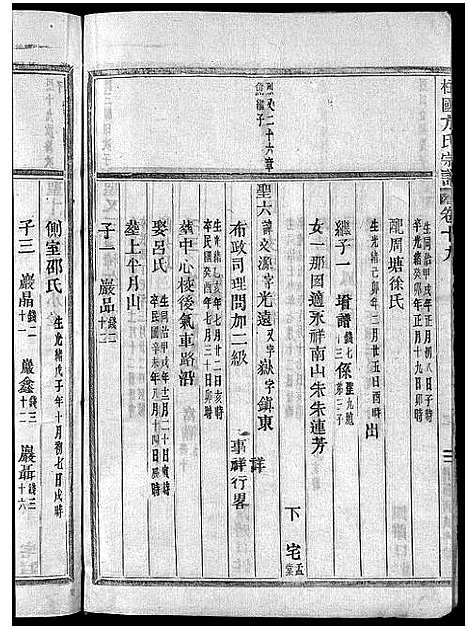 柱國方氏宗譜 卷十九
生同治甲戌年正月初八日子時
卒光緒癸卯年正月十九日卯時
配周塘徐氏
生光緒己卯年三月廿五日酉時 出
繼子一 堦譜 錢七 係聖九堯第三子
女一那因適永祥南山朱朱連芳
下宅孟堂
聖六 諱文源字光遠又字嶽字鎮東 詳
布政司理問加二級 事詳行畧
生光緒乙亥年七月廿二日亥時
卒民國癸酉年七月三十日卯時
墓中心棱後氣車路沿
娶呂氏
生同治甲戌年十二月二十日寅時
卒民國辛未年八月十四日辰時
墓上半月山
子一 巖品 錢二十二
側室邵氏 生光緒戊子年十月初七日戌時
子三 巖晶 錢二十一 巖鑫 錢三十二 巖聶 錢三十六